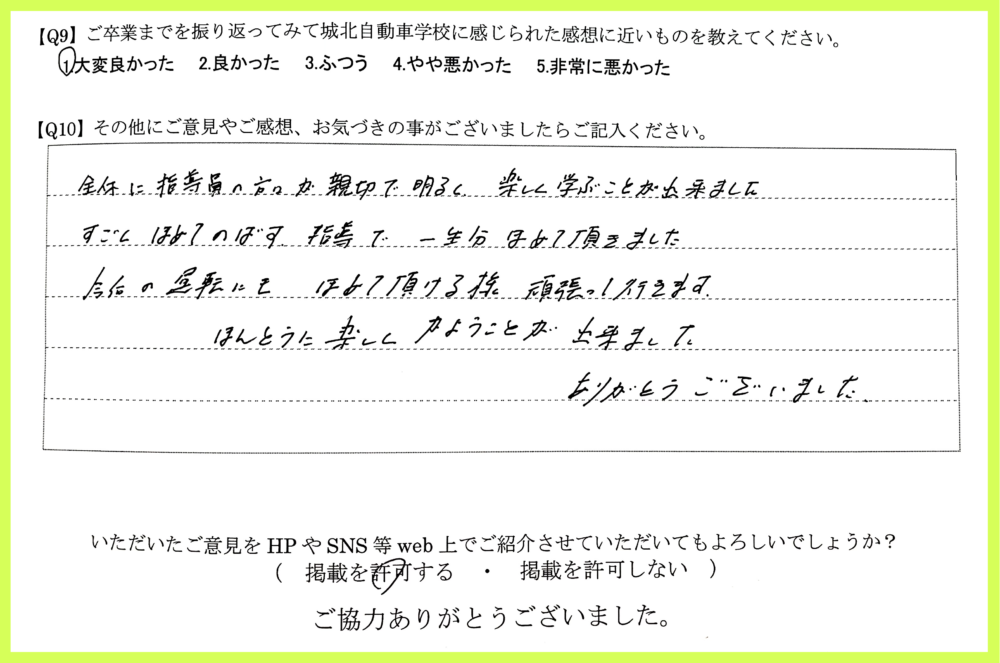 【Q9】ご卒業までを振り返ってみて城北自動車学校に感じられた感想に近いものを教えてください。
1.大変良かった 2.良かった 3.ふつう 4.やや悪かった 5.非常に悪かった
【Q10】その他にご意見やご感想、お気づきの事がございましたらご記入ください。
全体に指導員の方々が親切で明るく 楽しく学ぶことが出来ました
すごく ほめてのばす 指導で 一生分ほめて頂きました
今後の運転にも ほめて頂ける様 頑張って行きます。
ほんとうに楽しく かようことが 出来ました
ありがとうございました。
いただいたご意見をHPやSNS等web上でご紹介させていただいてもよろしいでしょうか？
（ 掲載を許可する ・ 掲載を許可しない ）
ご協力ありがとうございました。